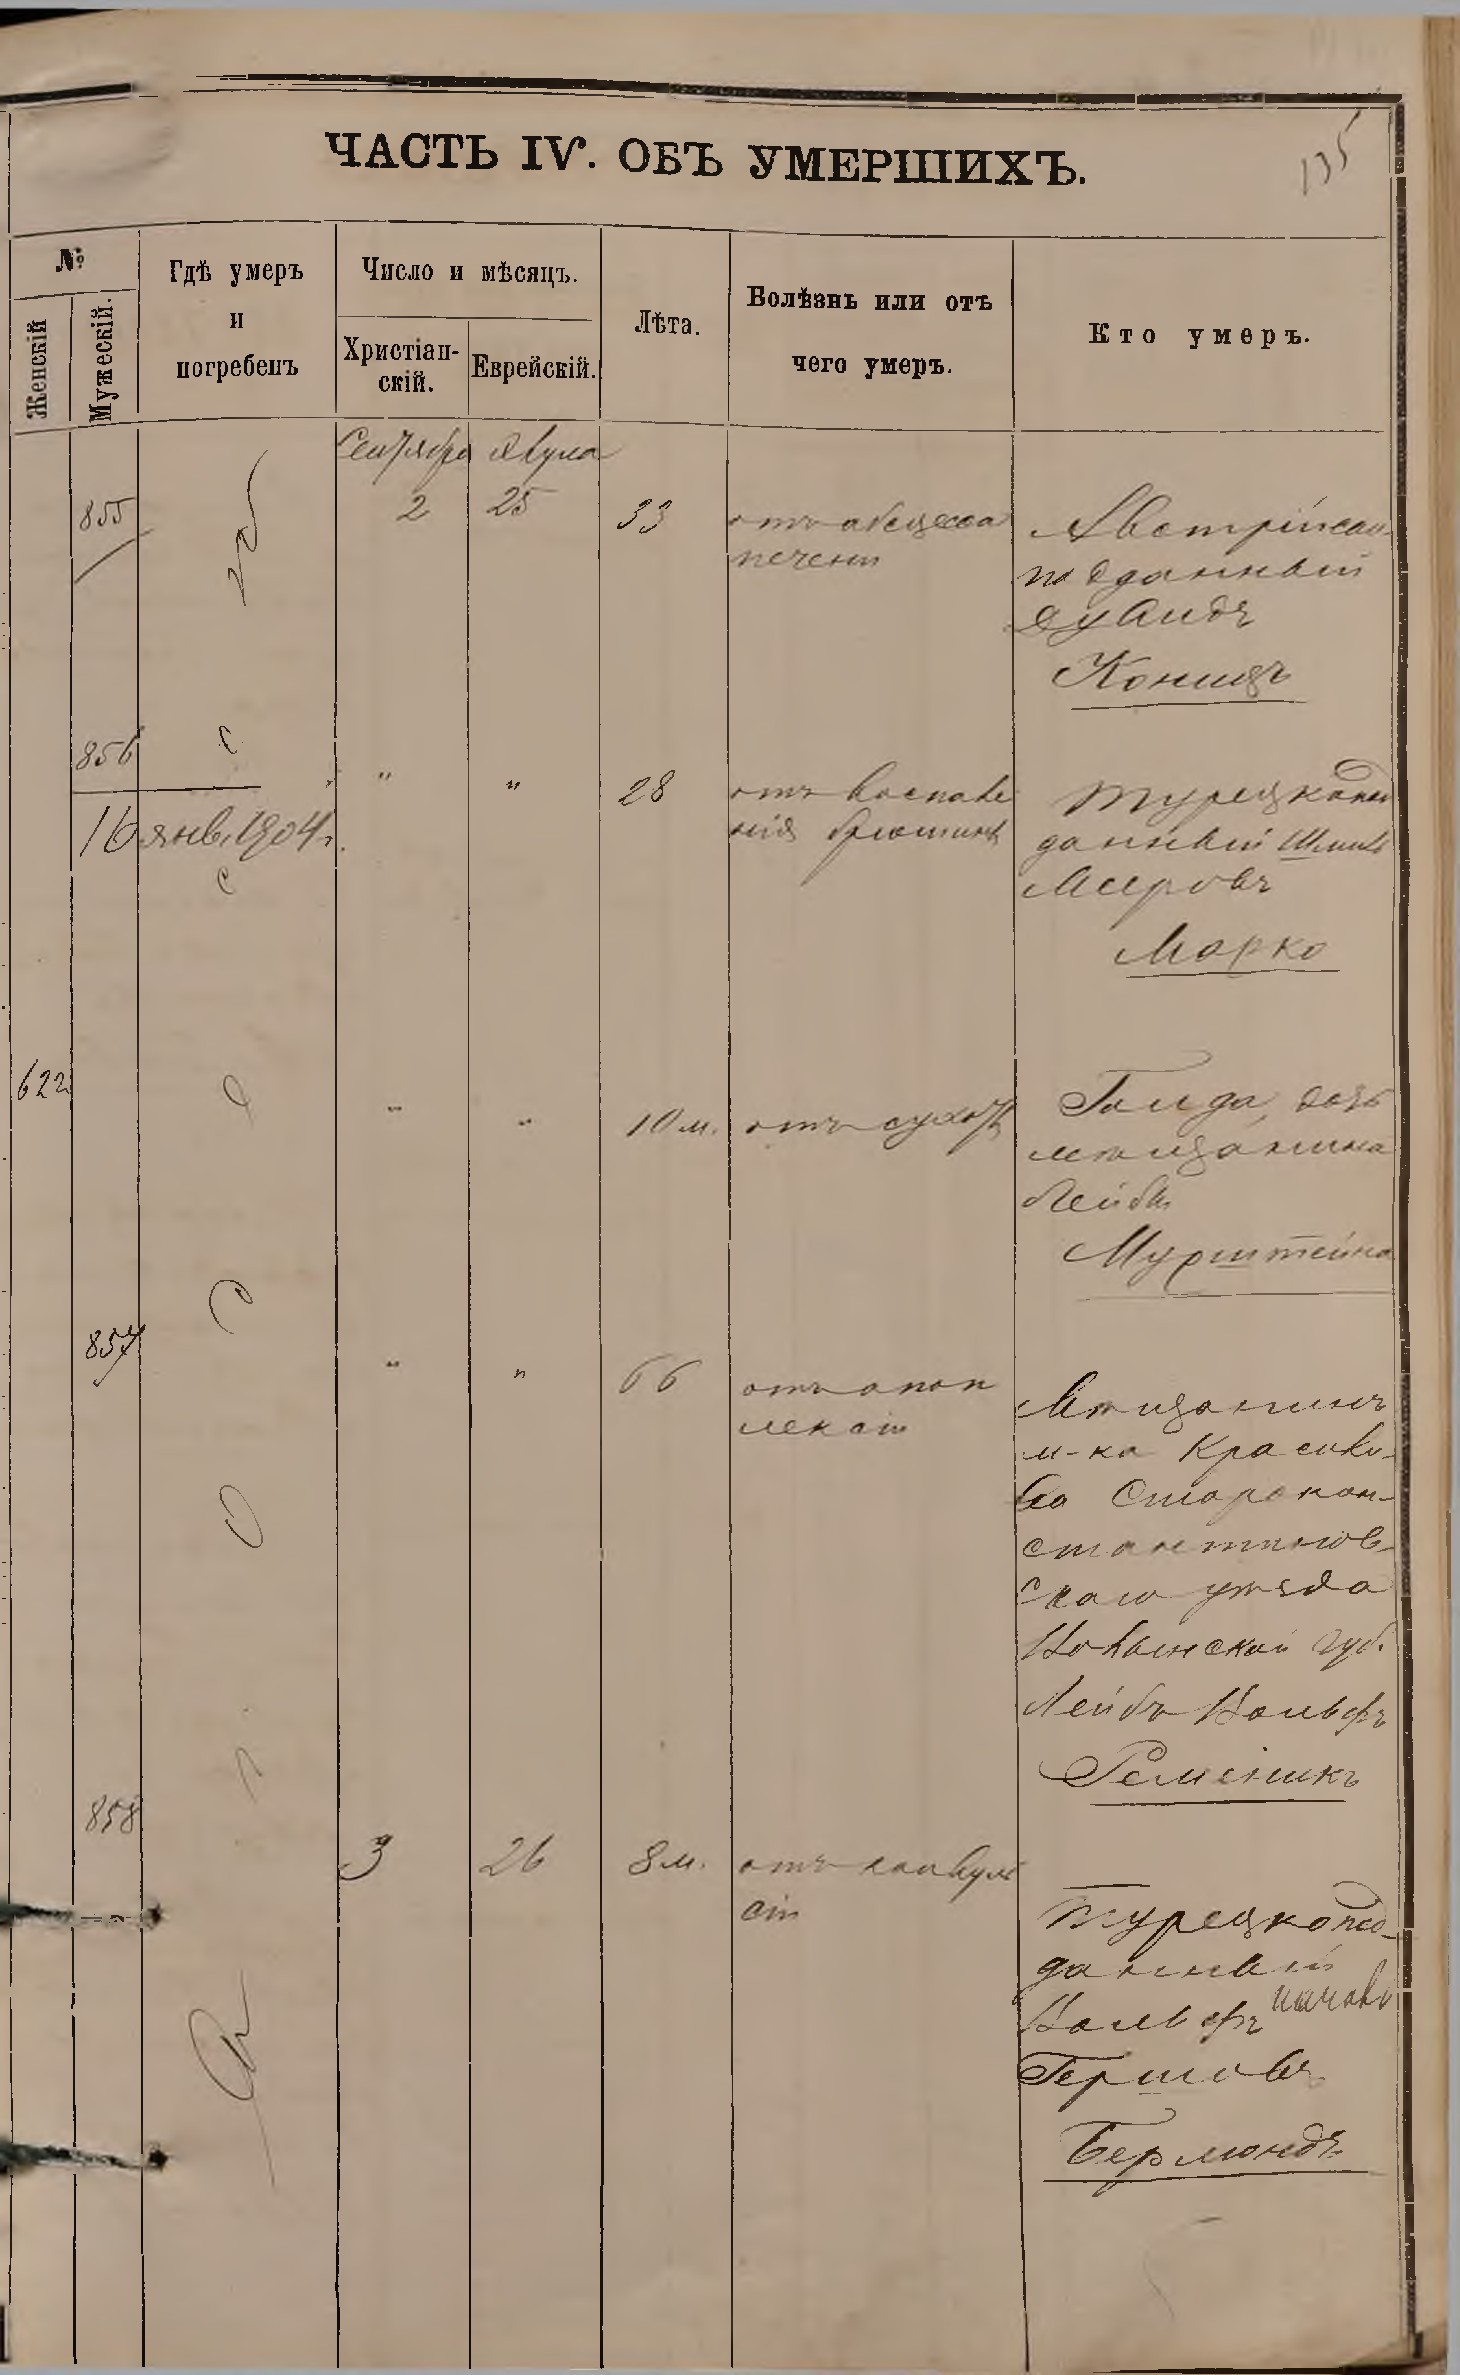 135
ЧАСТЬ IV. ОБЪ УМЕРШИХЪ.
№
Женскій
Мужескій.
Гдѣ умеръ
и
погребенъ
Число и мѣсяцъ.
Христіан-
скій.
Еврейскій.
Лѣта.
Болѣзнь или отъ
чего умеръ.
Кто умеръ.
Сентября Явула
855
2
25
33
отъ абсцесса
печени
Австрійск.
подданный
Давидъ
Коницъ
856
16 янв. 1904 г.
"
"
28
отъ воспале
нія брюшины
Турецкопод
данный Шлима
Мееровъ
Марко
622
"
"
10 м.
отъ сухот.
Голда, дочь
мѣщанина
Лейбы
Мурштейна
857
"
"
66
отъ апоп
лексіи
Мѣщанинъ
м-ка Красило-
ва Старокон-
стантинов-
скаго уѣзда
Волынской губ.
Лейбъ Вольфъ
Ременикъ
858
3
26
8 м.
отъ конвуль
сіи
Турецкопод-
данный
Вольфъ
Гершовъ
Бермондъ